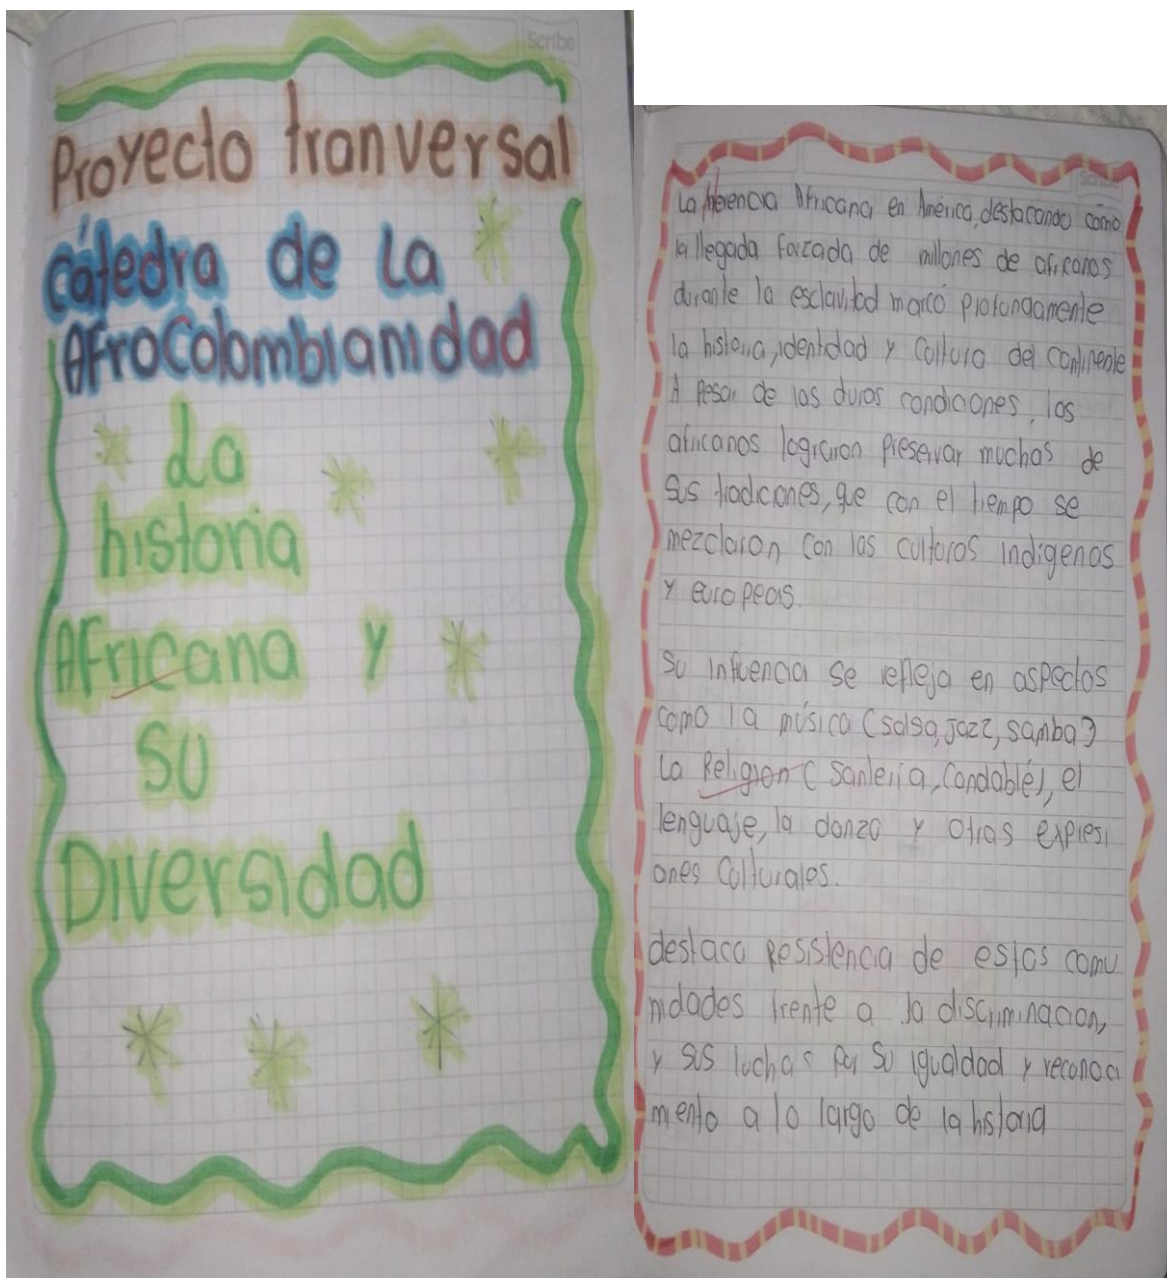 Scribe
Proyecto tranversal
cátedra de La
AfroColombianidad
La
historia
Africana y
SU
Diversidad
Scribe
La herencia Africana en América, destacando cómo
la llegada forzada de millones de africanos
durante la esclavitud marcó profundamente
la historia, identidad y cultura del continente
A pesar de las duras condiciones, los
africanos lograron preservar muchas de
sus tradiciones, que con el tiempo se
mezclaron con las culturas indígenas
y europeas.
Su influencia se refleja en aspectos
como la música (salsa, jazz, samba)
La Religion (Santería, Candablé), el
lenguaje, la danza y otras expresi
ones Culturales.
destaca Resistencia de estas comu
nidades frente a la discriminacion,
y sus luchas por su igualdad y reconoci
miento a lo largo de la historia